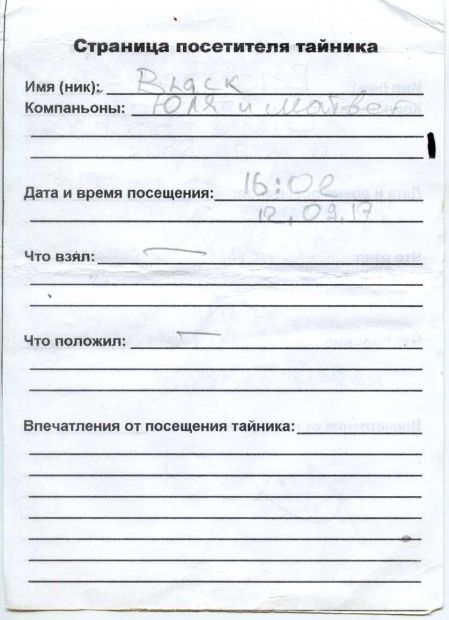 Страница посетителя тайника
Имя (ник): Black
Компаньоны: Юля и Матвей
Дата и время посещения: 16:02
12.09.17
Что взял: —
Что положил: —
Впечатления от посещения тайника: